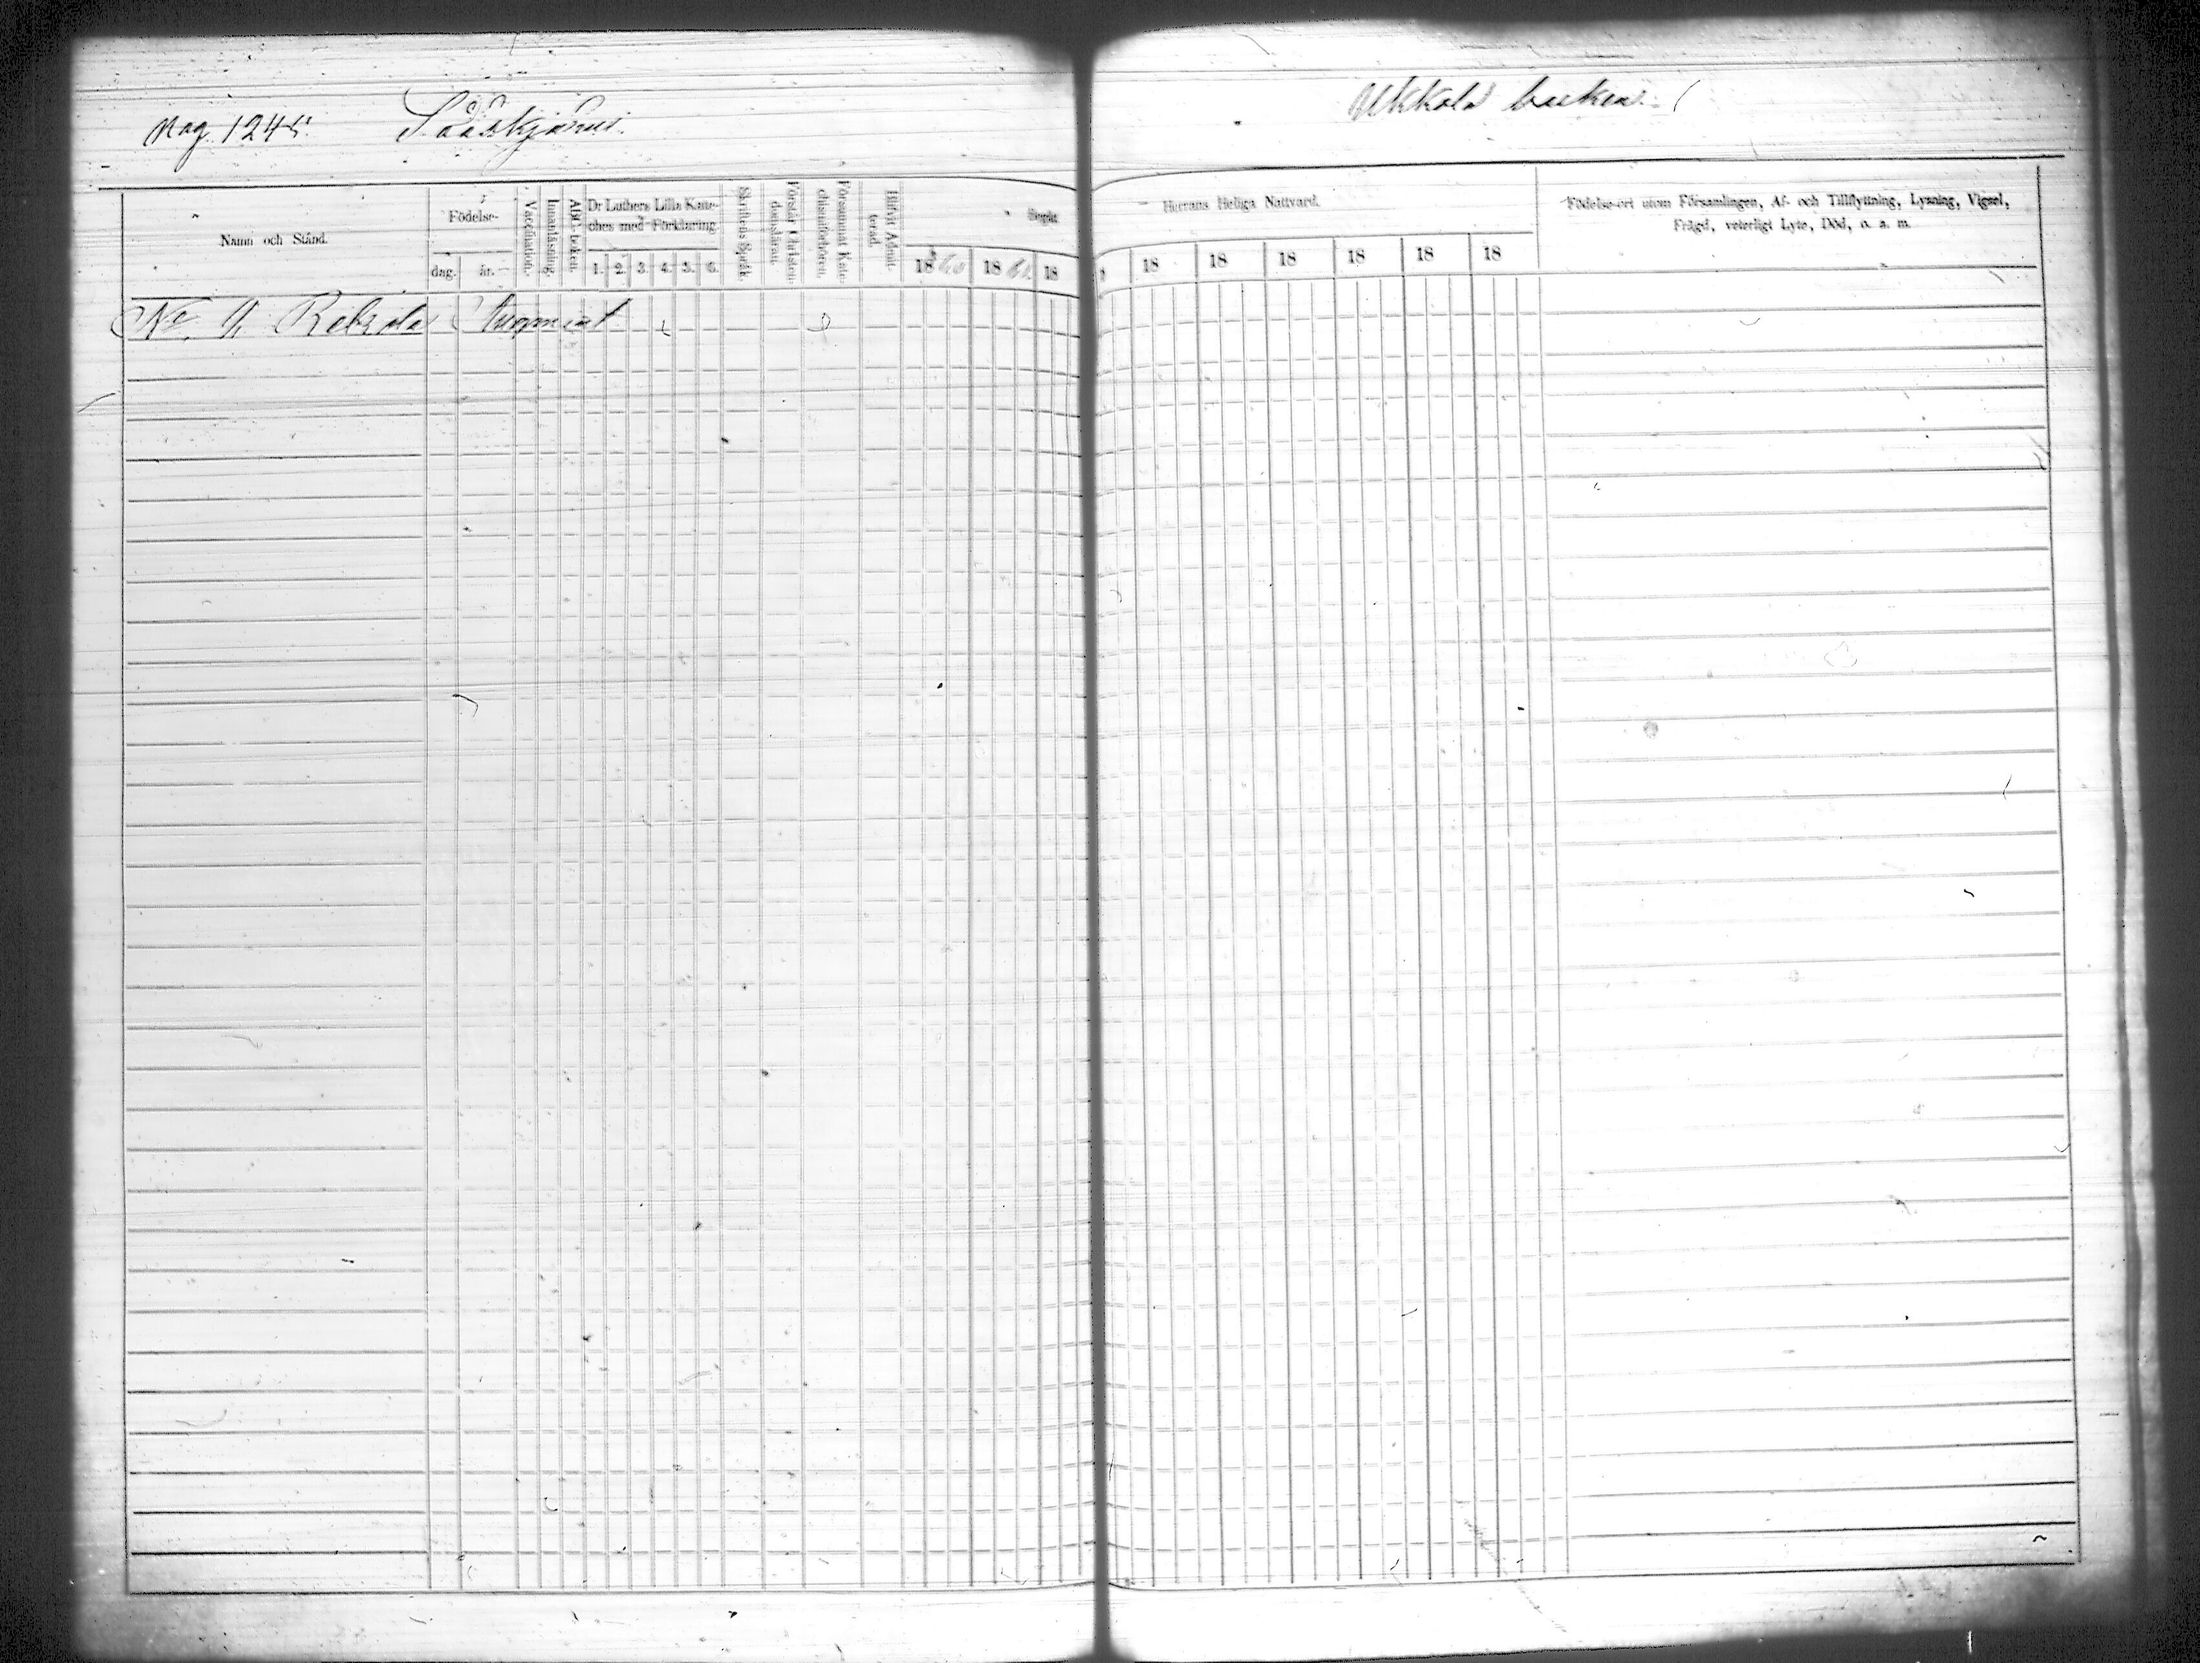 Pag. 1245.
Sääskjärvi.
Ukkola backen.
Namn och Stånd.
Födelse-
dag.
år.
Vaccination.
Innanläsning.
ABC-boken.
Dr Luthers Lilla Kate-
ches med Förklaring.
1. 2. 3. 4. 5. 6.
Skriftens Språk.
Förstår Christen-
domsläran.
Försummat Kate-
chismiförhören.
Blifvit Admit-
terad.
Begått
1860 1861 18
Herrans Heliga Nattvard.
18 18 18 18 18 18
Födelse-ort utom Församlingen, Af- och Tillflyttning, Lysning, Vigsel,
Frägd, veterligt Lyte, Död, o. a. m.
No 9. Rekola Augment